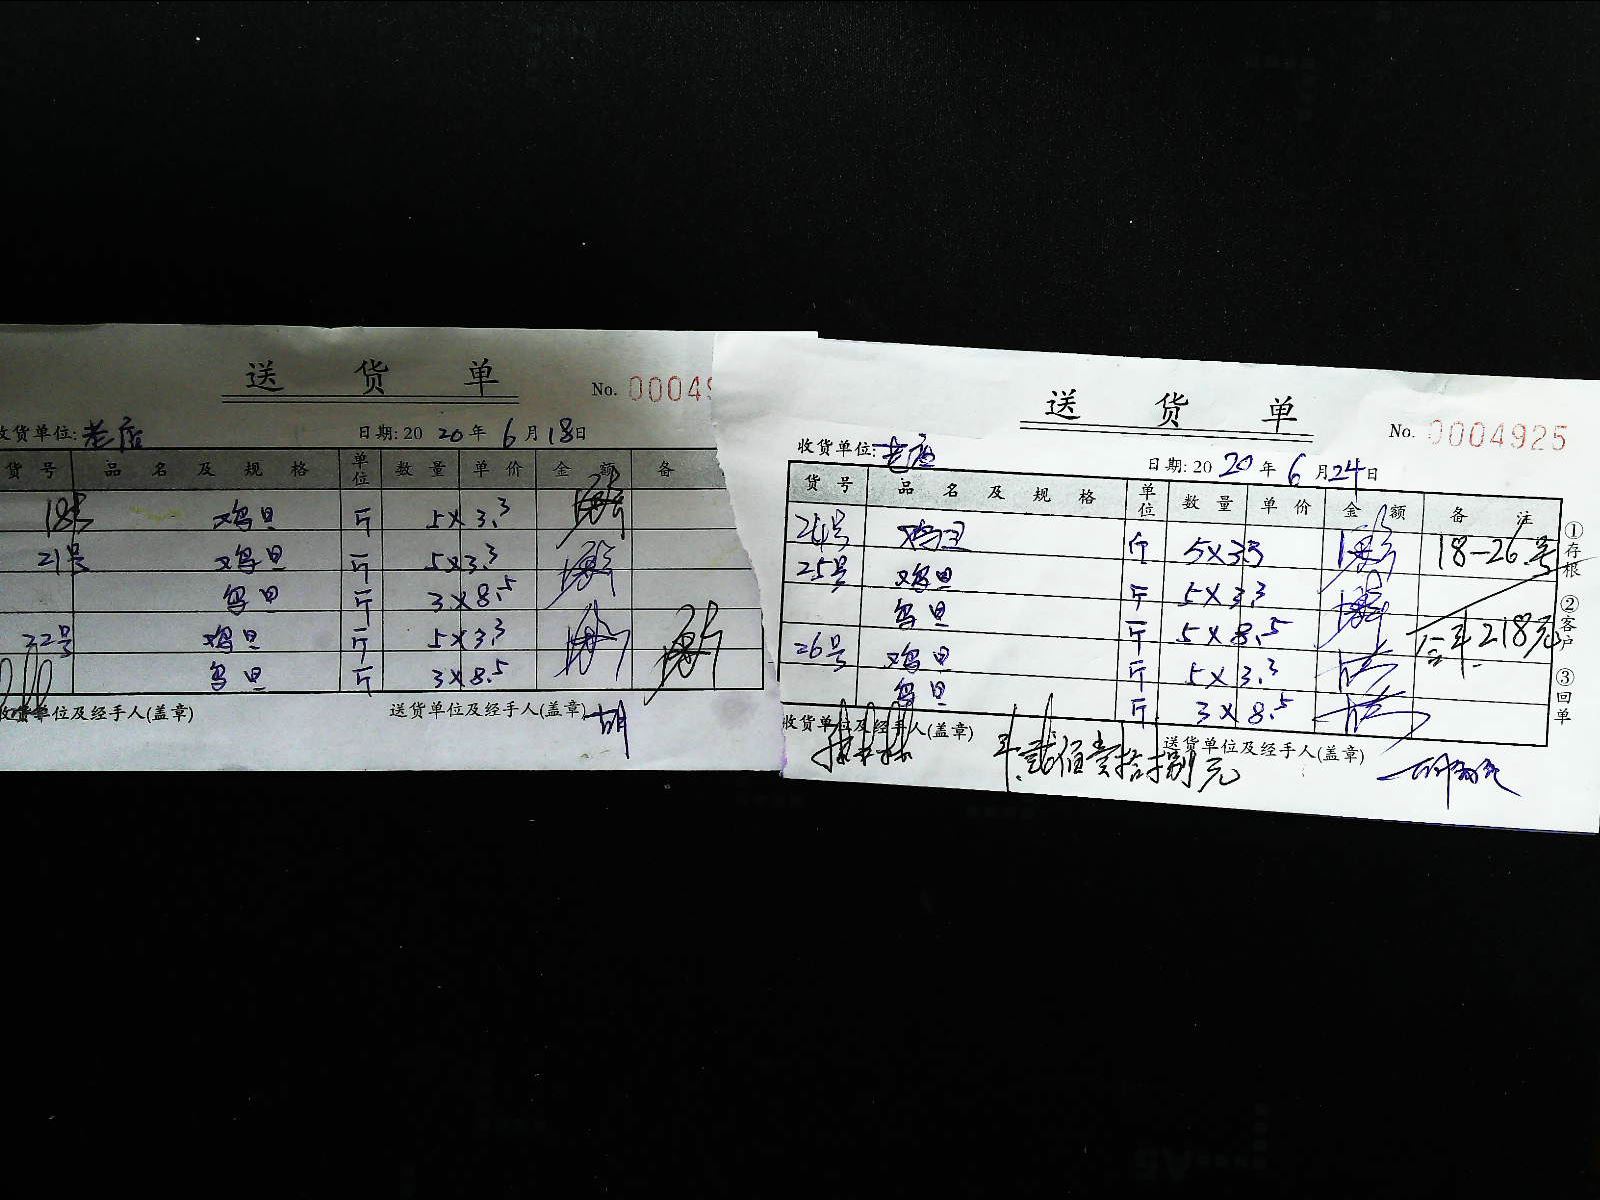 送 货 单
No. 00049
收货单位: 老店
日期: 20 20 年 6 月 18 日
货 号 品 名 及 规 格 单位 数 量 单 价 金 额 备
18号 鸡旦 斤 5×3.3
21号 鸡旦 斤 5×3.3
鸟旦 斤 3×8.5
22号 鸡旦 斤 5×3.3
鸟旦 斤 3×8.5
收货单位及经手人(盖章) 送货单位及经手人(盖章) 胡
送 货 单
No. 0004925
收货单位: 老店
日期: 20 20 年 6 月 24 日
货 号 品 名 及 规 格 单位 数 量 单 价 金 额 备 注
24号 鸡旦 斤 5×3.3 18-26号
25号 鸡旦 斤 5×3.3
鸟旦 斤 5×8.5 合计 218元
26号 鸡旦 斤 5×3.3
鸟旦 斤 3×8.5
①存根 ②客户 ③回单
收货单位及经手人(盖章) 送货单位及经手人(盖章)
贰佰壹拾捌元